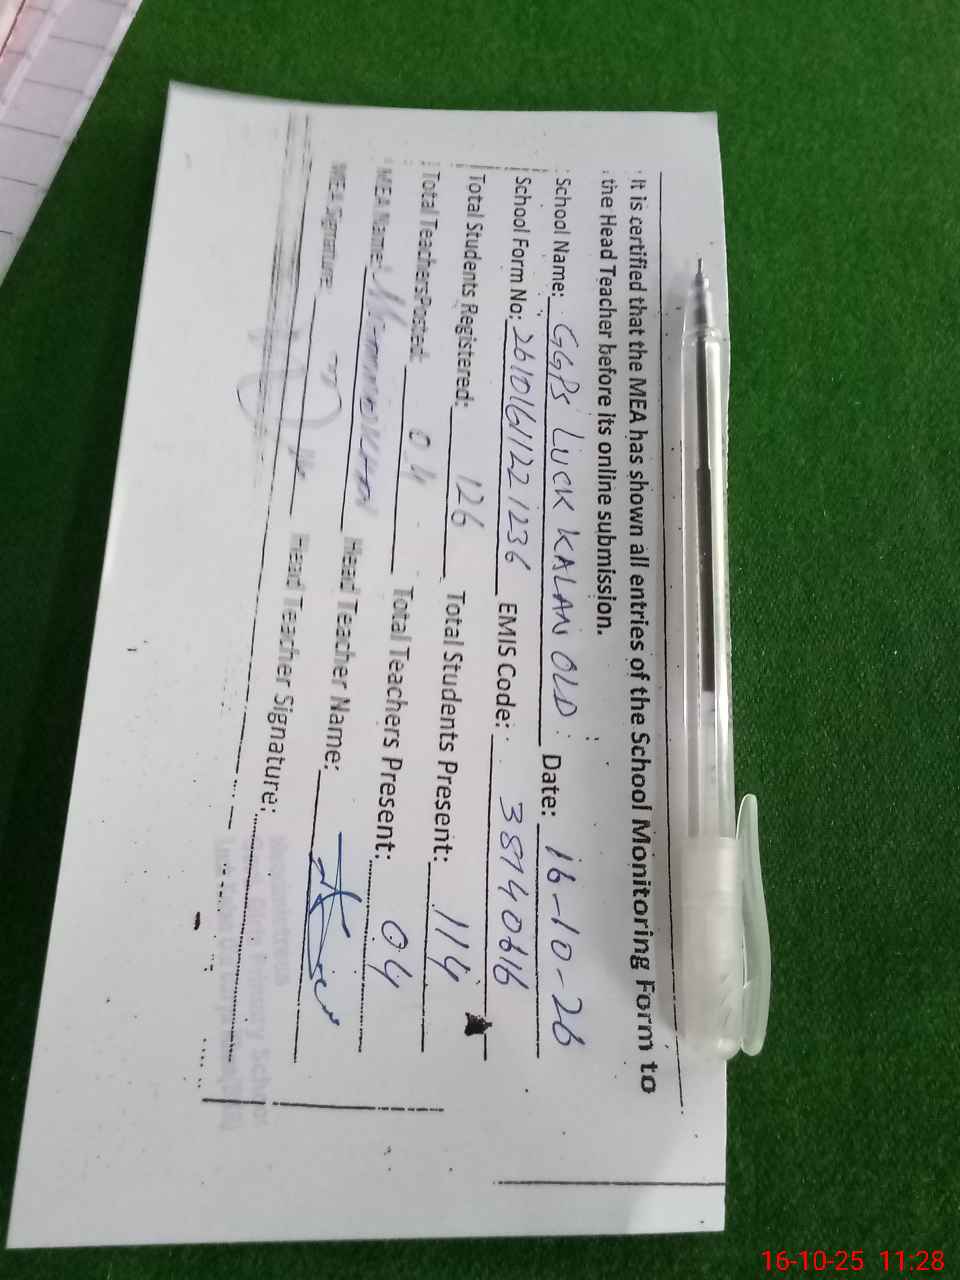 It is certified that the MEA has shown all entries of the School Monitoring Form to
the Head Teacher before its online submission.
School Name: GGPS LUCK KALAN OLD Date: 16-10-26
School Form No: 2610161122 1236 EMIS Code: 38740616
Total Students Registered: 126 Total Students Present: 114
Total Teachers Posted: 04 Total Teachers Present: 04
MEA Name: Head Teacher Name:
MEA Signature: Head Teacher Signature:
Headmistress
Govt. Girls Primary School
16-10-25 11:28